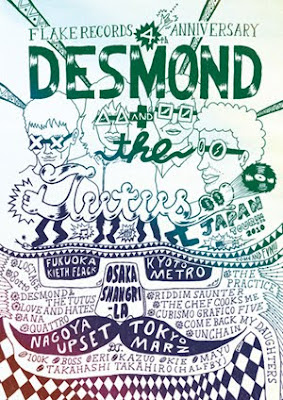 FLAKE RECORDS 4TH ANNIVERSARY
DESMOND
AND
the
tutus
JAPAN
TOUR!!! 2010
FUKUOKA
KIETH FLACK
KYOTO
METRO
OSAKA
SHANGRI
-LA
LOSTAGE
DESMOND &
THE TUTUS
LOVE AND HATES
QUATTRO
THE
PRACTICE
RIDDIM SAUNTER
THE CHEF COOKS ME
CUBISMO GRAFICO FIVE
COME BACK MY DAUGHTERS
UNCHAIN
NAGOYA
UPSET
TOKIO
MARZ
BOSS ERI KAZUO KIE MAYU
TAKAHASHI TAKAHIRO (HALFBY)